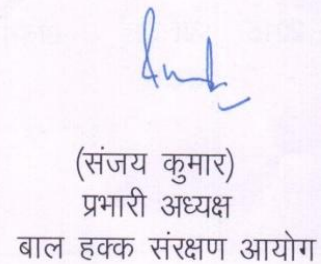 (संजय कुमार)
प्रभारी अध्यक्ष
बाल हक्क संरक्षण आयोग